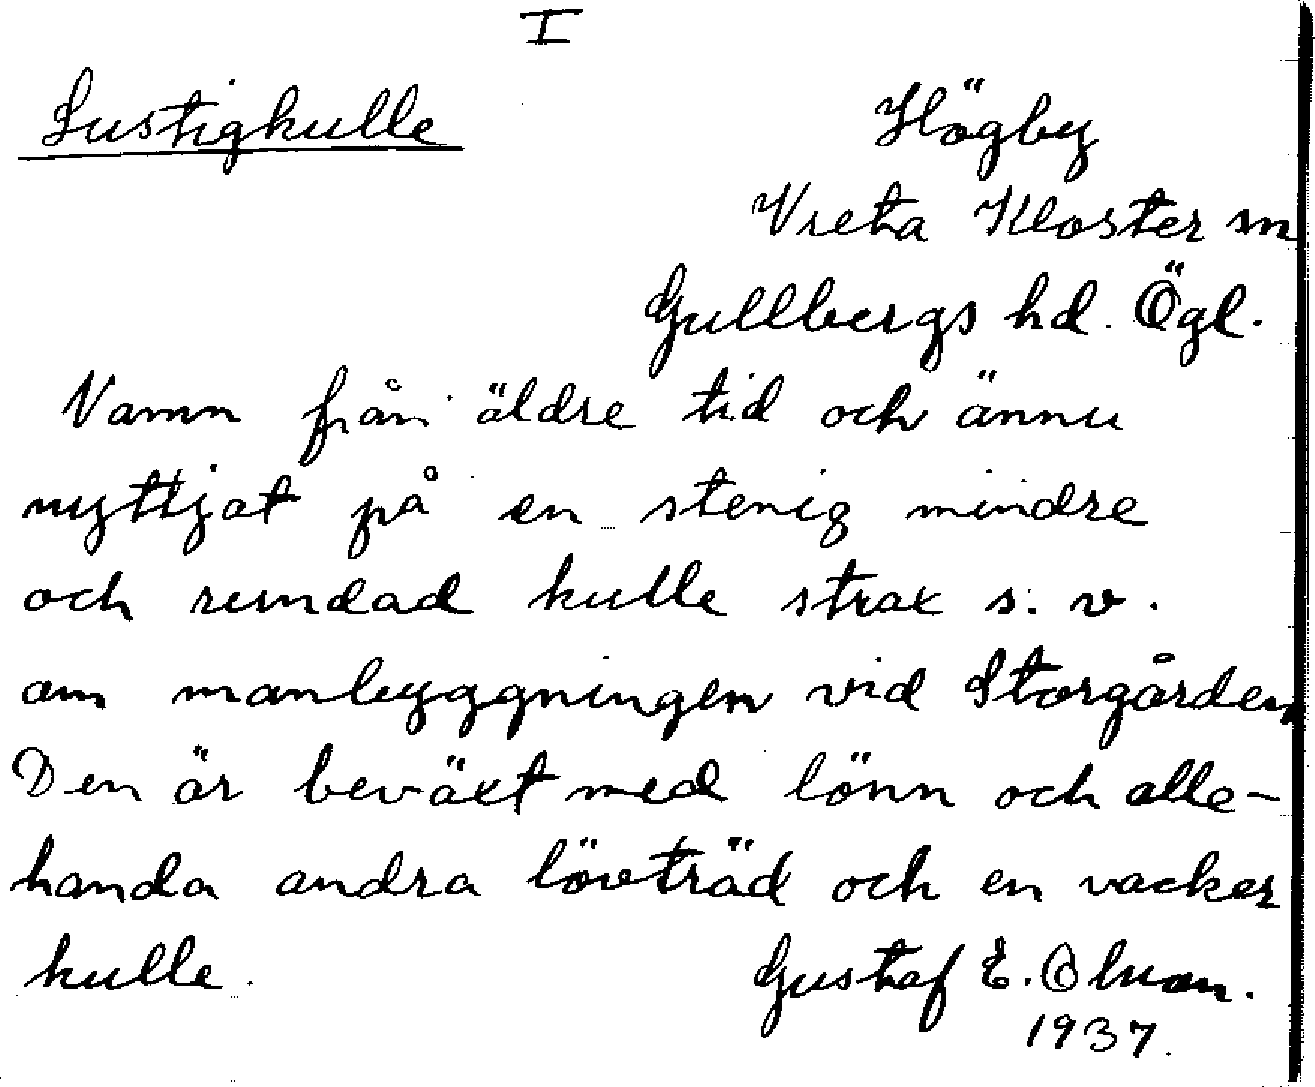 I
Lustigkulle
Högby
Vreta Kloster sn
Gullbergs hd. Ögl.
Namn från äldre tid och ännu
nyttjat på en stenig mindre
och rundad kulle strax s. v.
om manbyggningen vid Storgården
Den är beväxt med lönn och alle-
handa andra lövträd och en vacker
kulle.
Gustaf E.
1937.